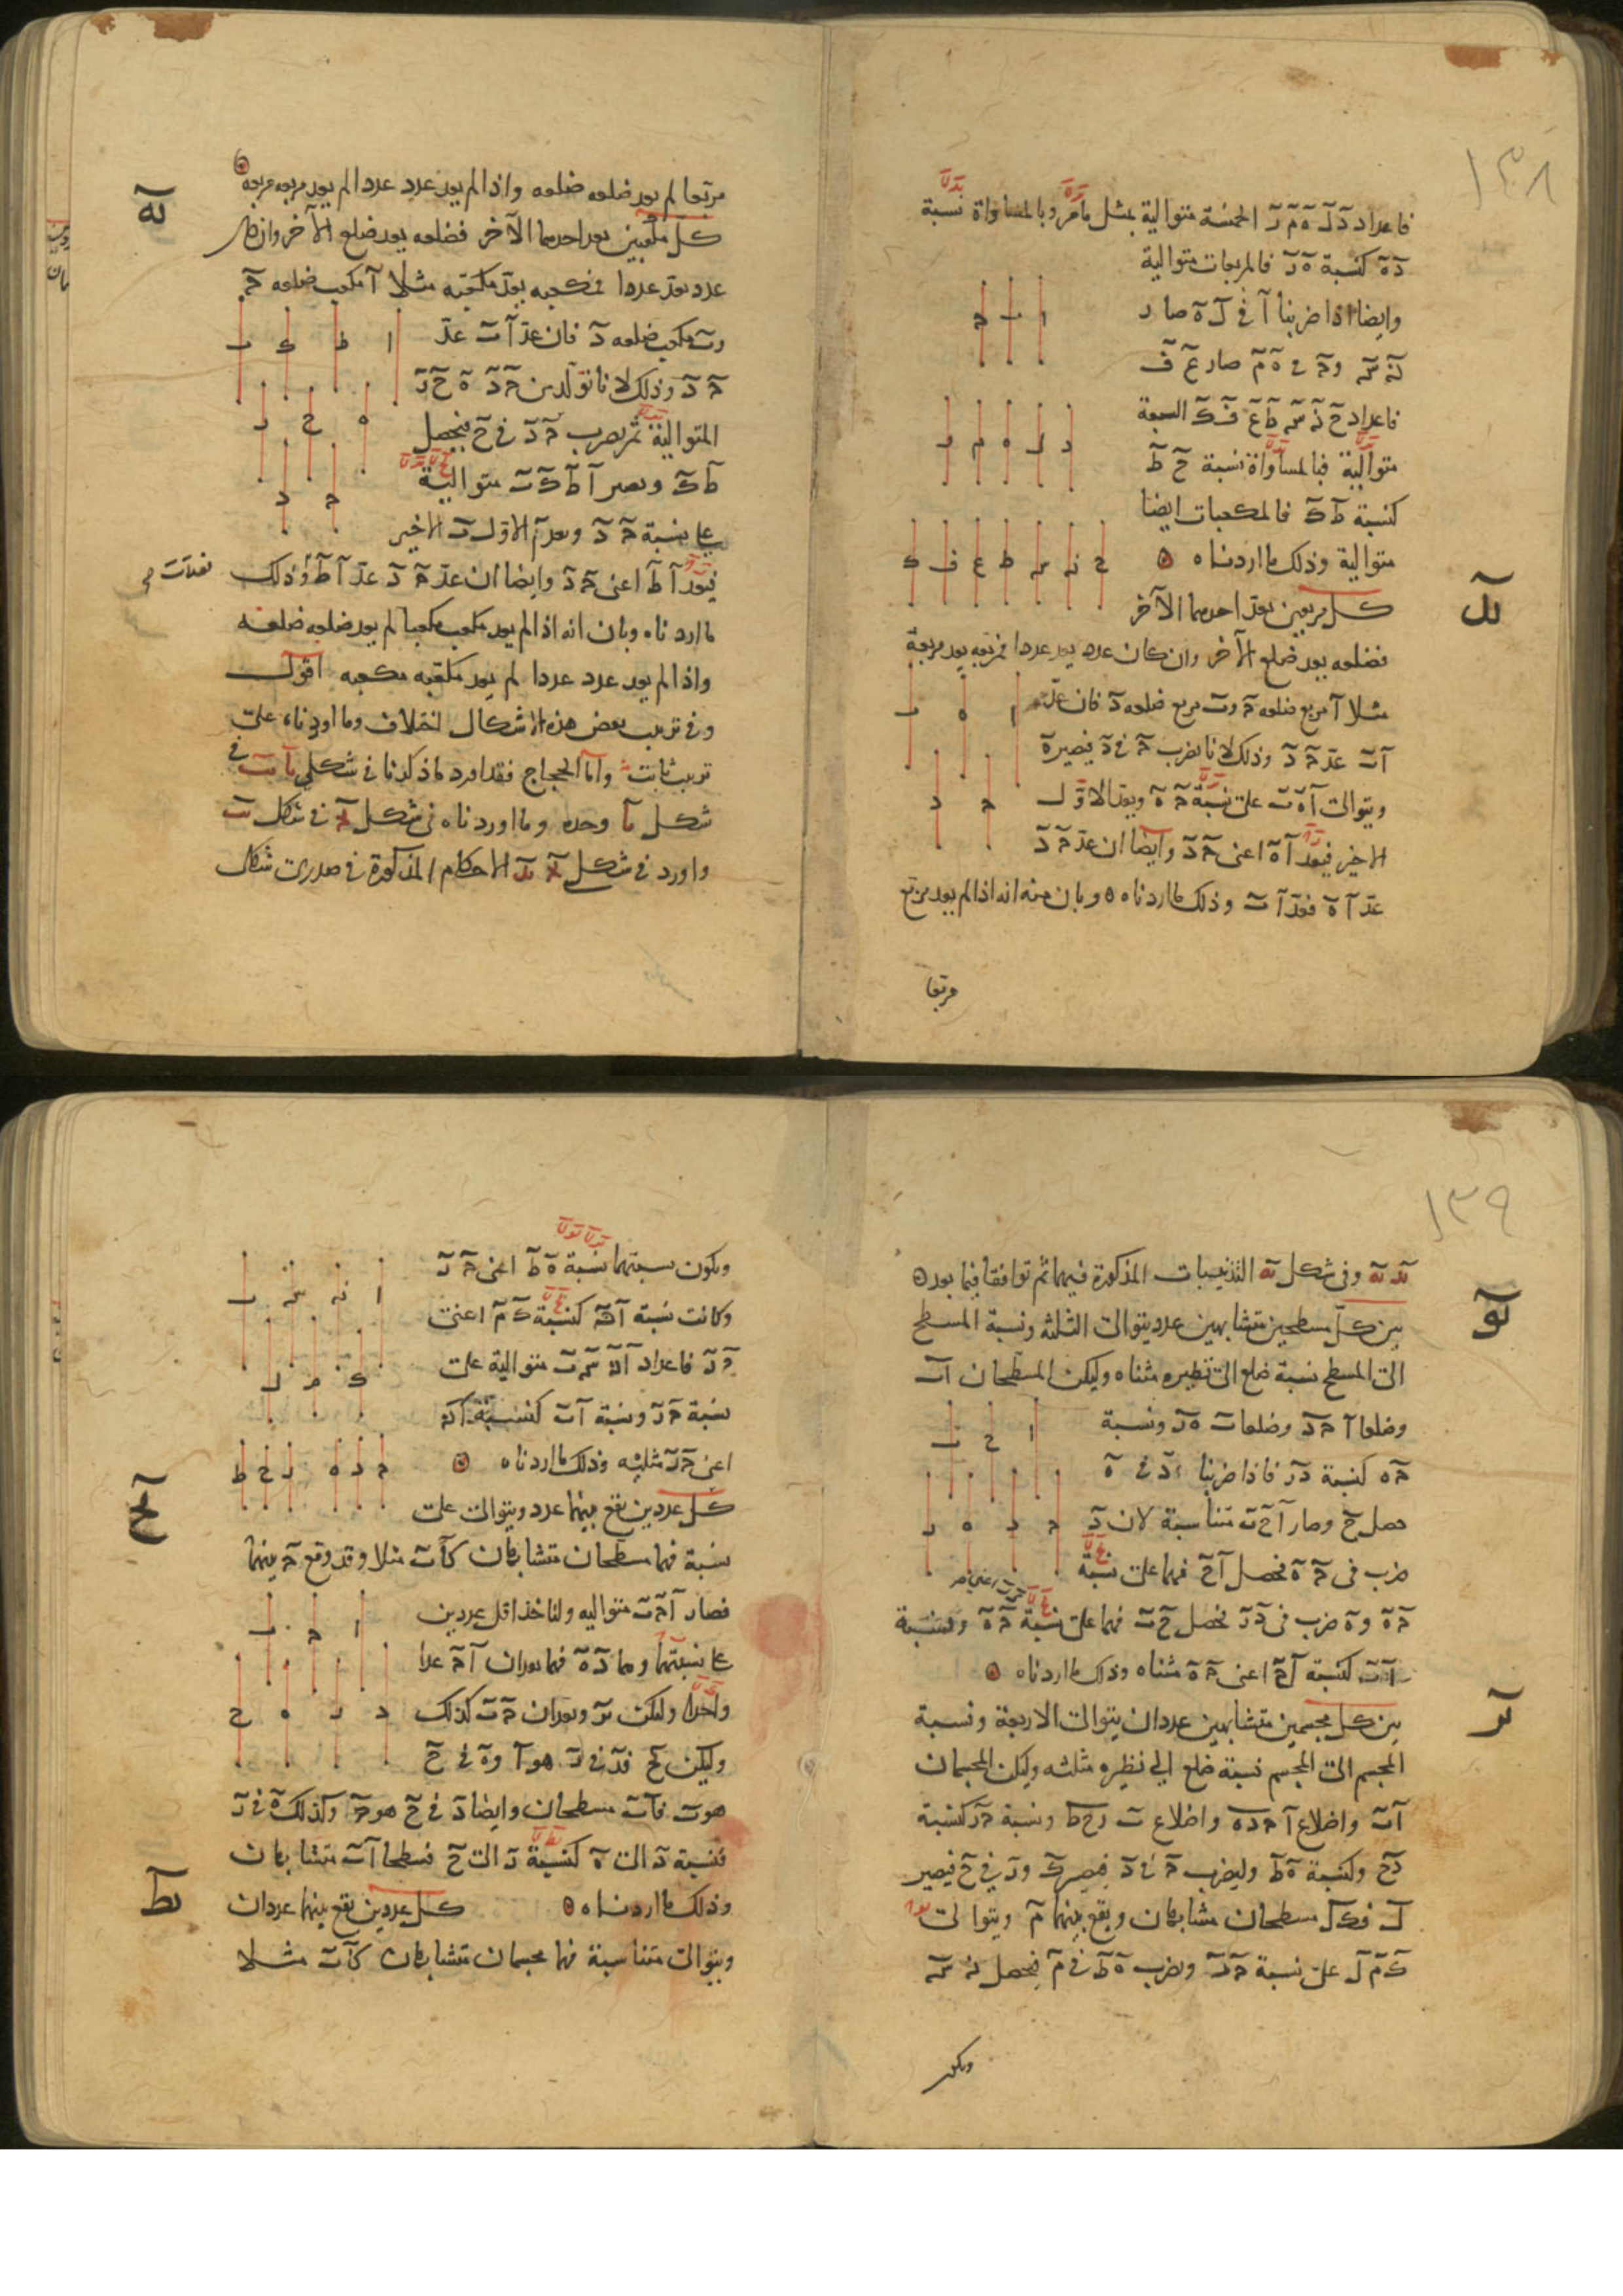 ١٣٨
فاعداد د ل ه م ر الخمسة متوالية بمثل ما مر وبالمساواة نسبة
د ه كنسبة ه ر فالمربعات متوالية
وايضا اذا ضربنا آ في ل ه صار
ن س و ح في ه م صار ع ف
فاعداد ح ن س ط ع ف ك السبعة
متوالية فبالمساواة نسبة ح ط
كنسبة ط ك فالمكعبات ايضا
متوالية وذلك ما اردناه
كل مربعين يعد احدهما الآخر
فضلعه يعد ضلع الآخر وان كان عدد يعد عددا فمربعه يعد مربعه
مثلا آ مربع ضلعه ح و ب مربع ضلعه د فان عد
آ ب عد ح د وذلك لانا نضرب ح في د فيصير ه
ويتوالى آ ه ب على نسبة ح ه ويعد الاول
الاخير فيعد آ ه اعنى ح د وايضا ان عد ح د
عد آ ه فعد آ ب وذلك ما اردناه وبان منه انه اذا لم يعد مربع
مربعا
مربعا لم يعد ضلعه ضلعه واذا لم يعد عدد عددا لم يعد مربعه مربعه
كه
كل مكعبين يعد احدهما الآخر فضلعه يعد ضلع الآخر وان كان
عدد يعد عددا فمكعبه يعد مكعبه مثلا آ مكعب ضلعه ح
و ب مكعب ضلعه د فان عد آ ب عد
ح د وذلك لانا نولد من ح د ه ح ر
المتوالية ثم نضرب ح د في ح فيحصل
ط ك ويصير آ ط ك ب متوالية
على نسبة ح د ويعد آ الاول ب الاخير
فيعد آ ط اعنى ح د وايضا ان عد ح د عد آ ط وذلك
ما اردناه وبان انه اذا لم يعد مكعب مكعبا لم يعد ضلعه ضلعه
واذا لم يعد عدد عددا لم يعد مكعبه مكعبه اقول
وفى ترتيب بعض هذه الاشكال اختلاف وما اوردناه على
ترتيب ثابت واما الحجاج فقد اورد ما ذكرنا فى شكلى يا يب فى
شكل يا وحده وما اوردناه فى شكل يج فى شكل يب
واورد فى شكل يج يد الاحكام المذكورة فى صدرى شكلى
١٣٩
يد يه وفى شكل يه التذنيبات المذكورة فيهما ثم توافقا فيما بعد
بين كل مسطحين متشابهين عدد يتوالى الثلثة ونسبة المسطح
الى المسطح نسبة ضلع الى نظيره مثناه وليكن المسطحان آ ب
وضلعا آ ح د وضلعا ب ه ر ونسبة
ح ه كنسبة د ر فاذا ضربنا د في ه
حصل ح وصار آ ح ب متناسبة لان د
ضرب فى ح ه فحصل آ ح فهما على نسبة
ح ه و ه ضرب فى د ر فحصل ح ب فهما على نسبة ح ه ونسبة
آ ب كنسبة آ ح اعنى ح ه مثناه وذلك ما اردناه
بين كل مجسمين متشابهين عددان يتوالى الاربعة ونسبة
المجسم الى المجسم نسبة ضلع الى نظيره مثلثه وليكن المجسمان
آ ب واضلاع آ ح د ه واضلاع ب ر ح ط ونسبة ح ر كنسبة
د ح وكنسبة ه ط وليضرب ح في د فيصير ك و ر في ح فيصير
ل فك ل مسطحان متشابهان ويقع بينهما م ويتوالى
ك م ل على نسبة ح ر ونضرب ه ط في م فيحصل ن س
ويكون
ويكون نسبتهما نسبة ه ط اعنى ح ر
وكانت نسبة آ ن كنسبة ك م اعنى
ح ر فاعداد آ ن س ب متوالية على
نسبة ح ر ونسبة آ ب كنسبة آ ن
اعنى ح ر مثلثه وذلك ما اردناه
كح
كل عددين يقع بينهما عدد ويتوالى على
نسبة فهما مسطحان متشابهان كآ ب مثلا وقد وقع ح بينهما
فصار آ ح ب متوالية ولناخذ اقل عددين
على نسبتهما وهما د ه فهما يعدان آ ح عدا
واحدا وليكن ر ويعدان ح ب كذلك
وليكن ح فد في ر هو آ و ه في ح
هو ب فآ ب مسطحان وايضا د في ح هو ح وكذلك ه في ر
فنسبة د الى ه كنسبة ر الى ح فسطحا آ ب متشابهان
كط
وذلك ما اردناه كل عددين يقع بينهما عددان
ويتوالى متناسبة فهما مجسمان متشابهان كآ ب مثلا